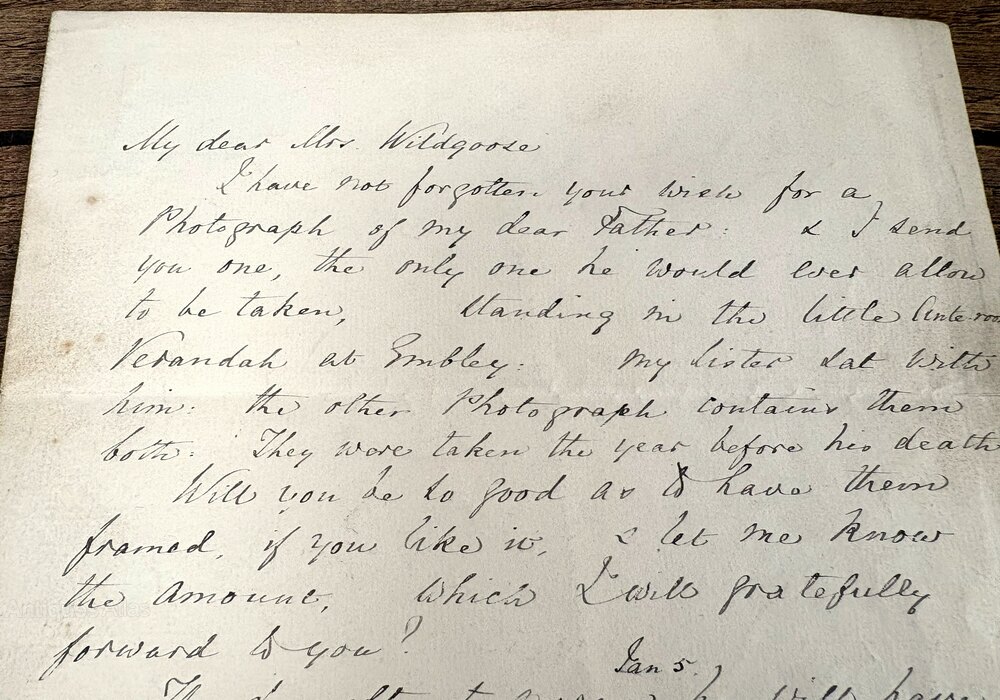 My dear Mrs. Wildgoose
I have not forgotten your wish for a
Photograph of my dear Father: & I send
you one, the only one he would ever allow
to be taken, standing in the little Ante-room
Verandah at Embley: my sister sat with
him: the other Photograph contains them
both: They were taken the year before his death
Will you be so good as to have them
framed, if you like it, & let me know
the amount, which I will gratefully
forward to you?
Jan 5.
will have